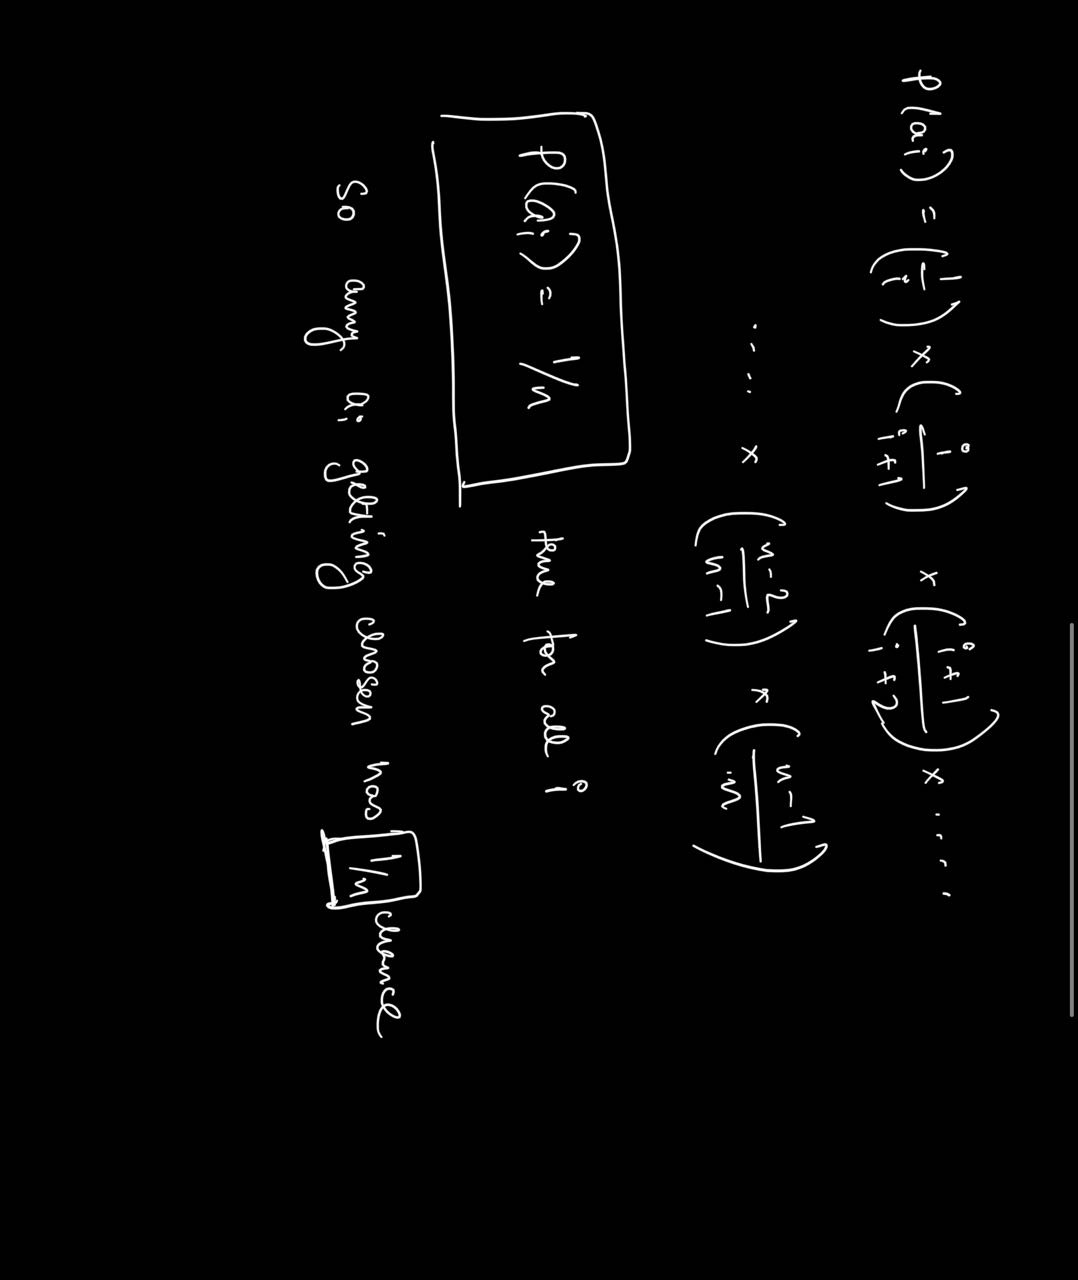 P(ai) = (1/i) × (i/i+1) × (i+1/i+2) × .....
..... × (n-2/n-1) × (n-1/n)
P(ai) = 1/n true for all i
So any ai getting chosen has 1/n chance